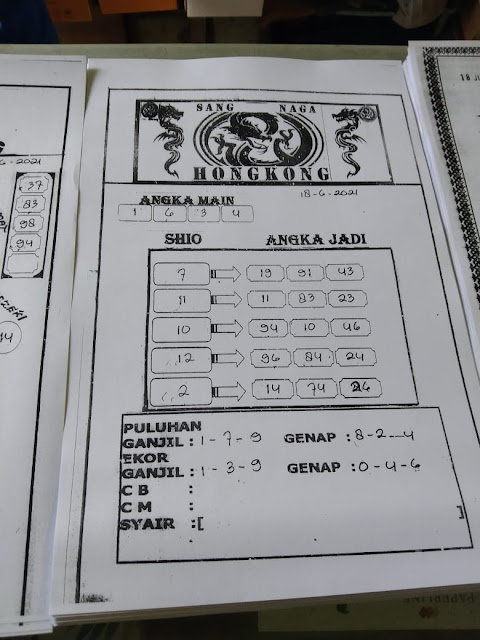 SANG NAGA
HONGKONG
18-6-2021
ANGKA MAIN
1 6 3 4
SHIO ANGKA JADI
7 19 91 43
11 11 83 23
10 94 10 46
12 96 84 24
2 14 74 26
PULUHAN
GANJIL : 1-7-9 GENAP : 8-2-4
EKOR
GANJIL : 1-3-9 GENAP : 0-4-6
C B :
C M :
SYAIR :[ ]
6-2021
37
83
98
94
18 J